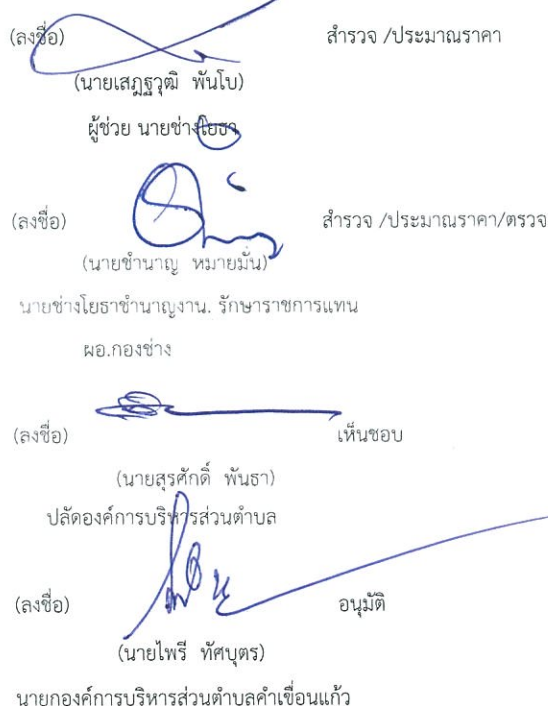 (ลงชื่อ) สำรวจ /ประมาณราคา
(นายเสฏฐวุฒิ พันโบ)
ผู้ช่วย นายช่างโยธา
(ลงชื่อ) สำรวจ /ประมาณราคา/ตรวจ
(นายชำนาญ หมายมั่น)
นายช่างโยธาชำนาญงาน. รักษาราชการแทน
ผอ.กองช่าง
(ลงชื่อ) เห็นชอบ
(นายสุรศักดิ์ พันธา)
ปลัดองค์การบริหารส่วนตำบล
(ลงชื่อ) อนุมัติ
(นายไพรี ทัศบุตร)
นายกองค์การบริหารส่วนตำบลคำเขื่อนแก้ว